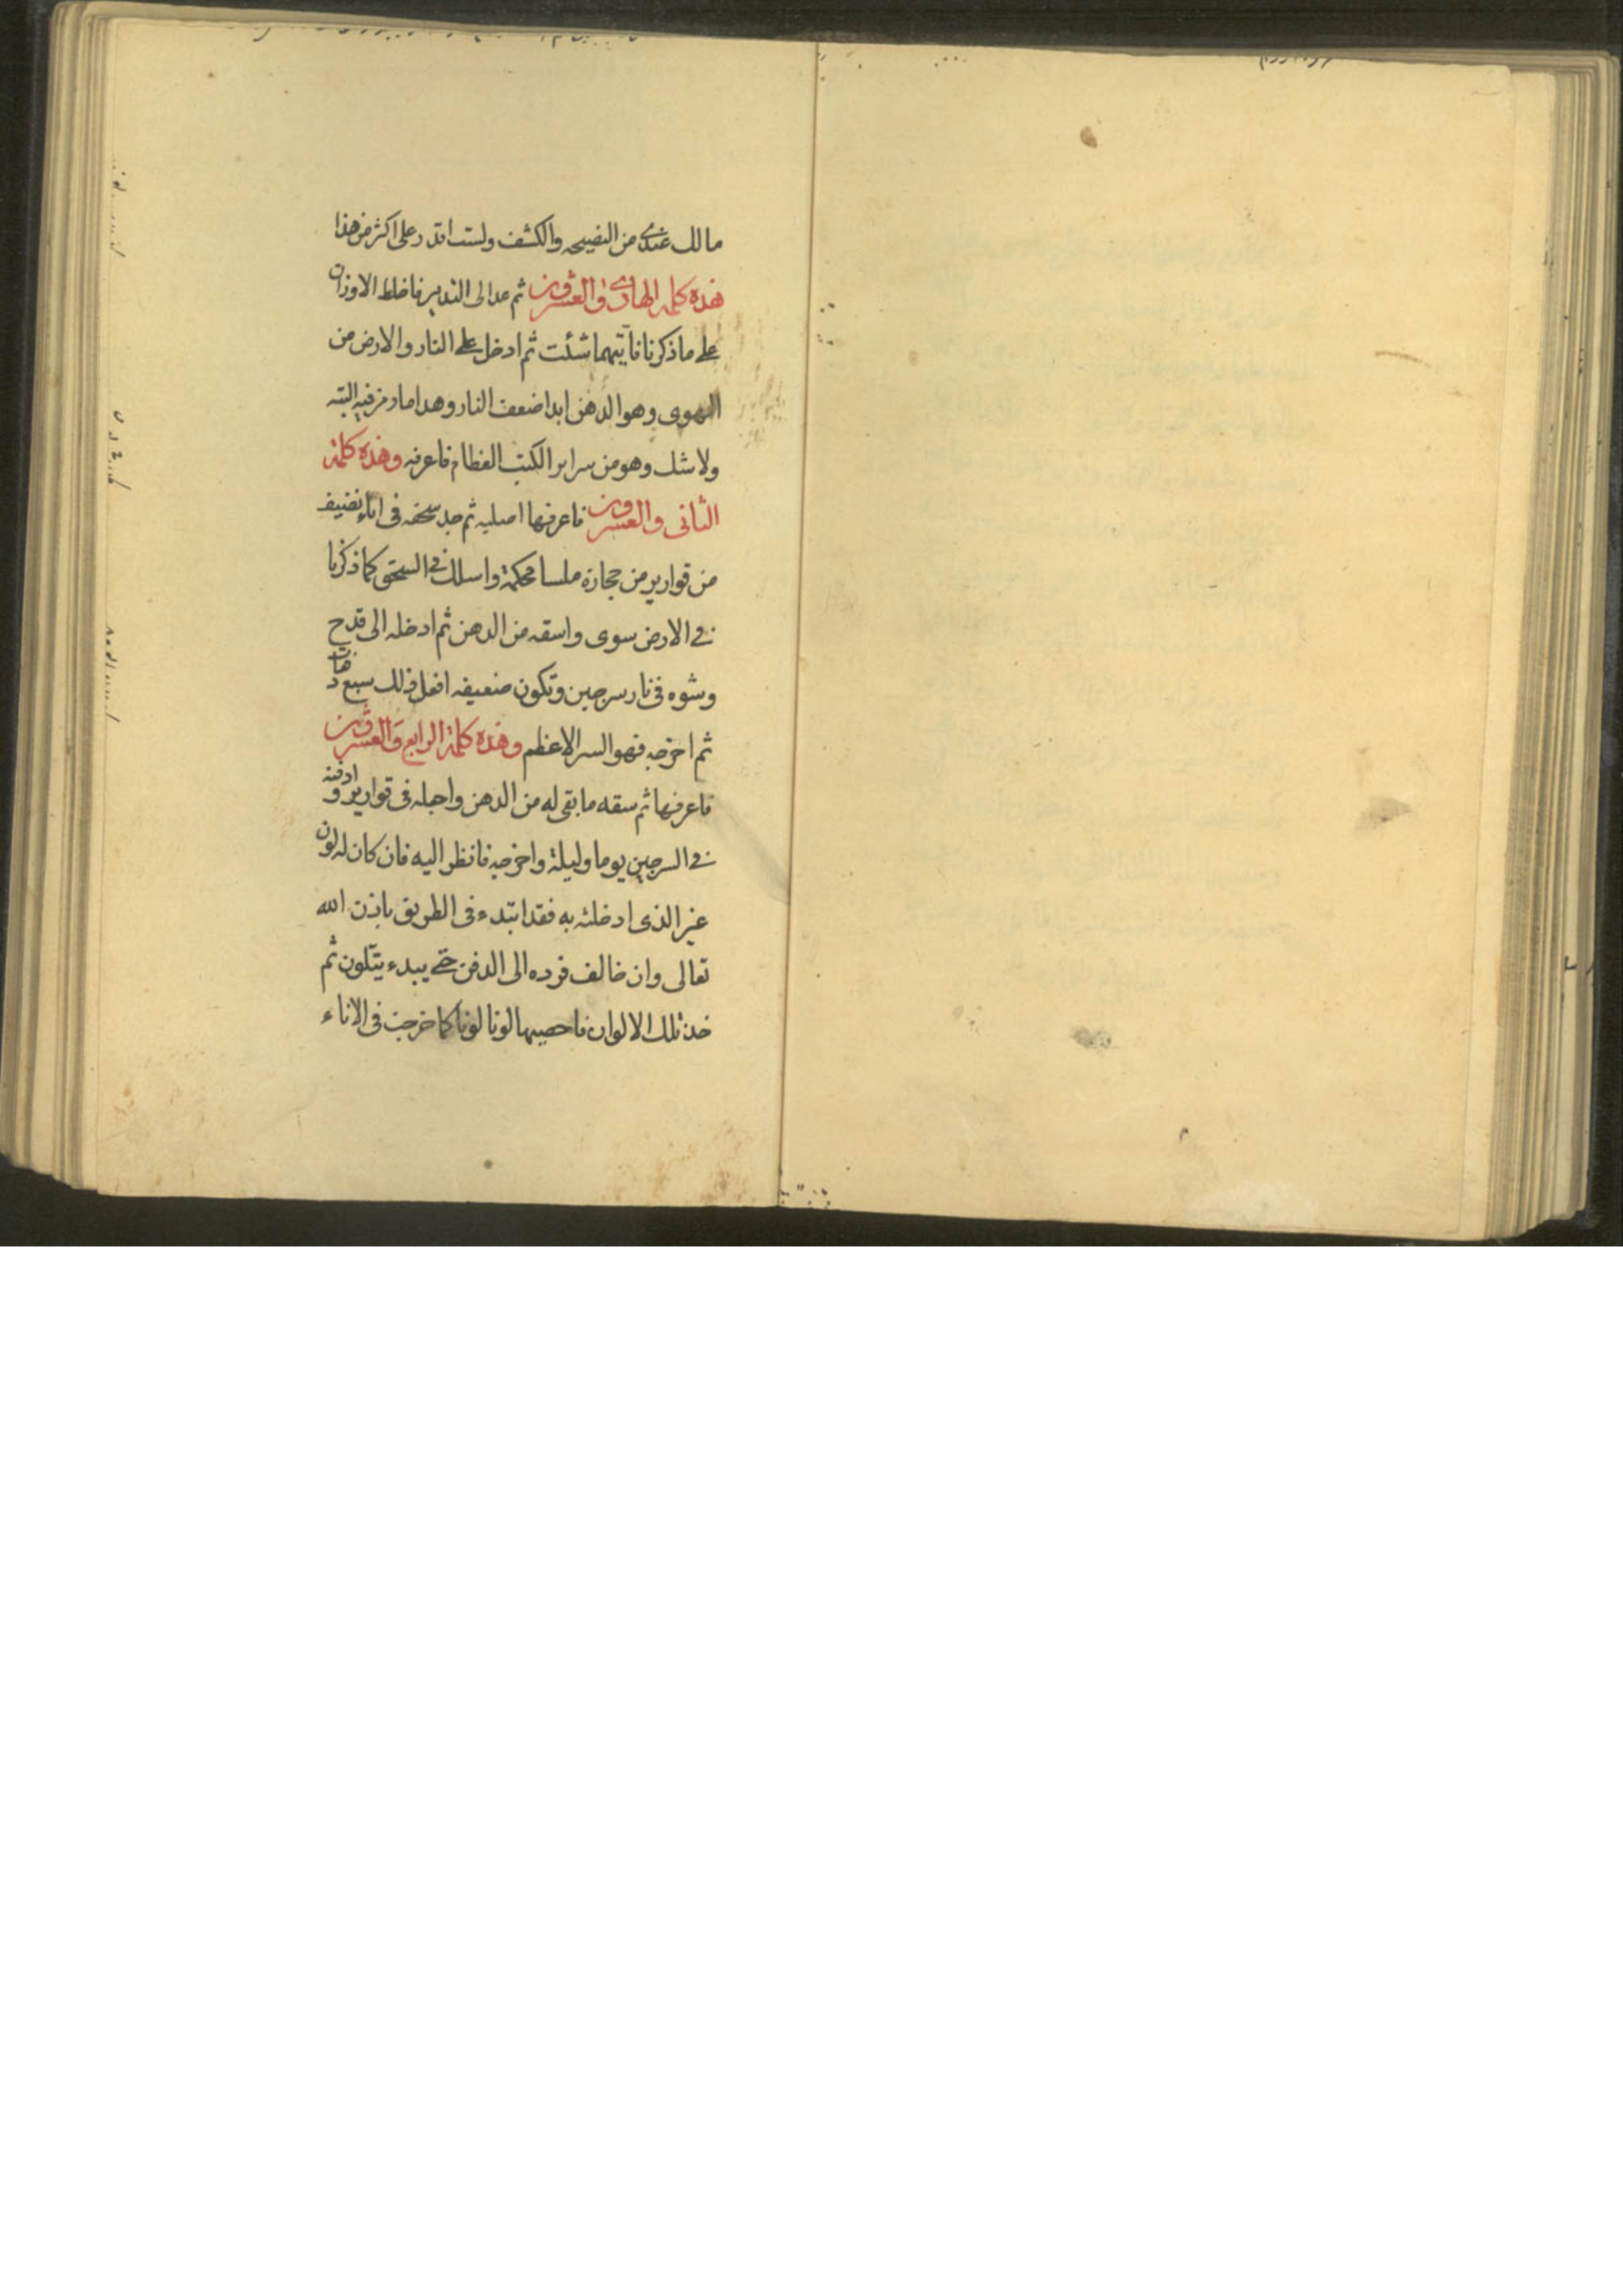 مالك عندى من النصيحه والكشف ولست اقدر على اكثر من هذا
هذه كلمه الهادى والعشرون ثم عد الى التدبير فاخلط الاوزان
على ما ذكرنا فأتيهما شئت ثم ادخل على النار والارض من
الهوى وهو الدهن ابدا ضعف النار وهدا ما رمز فيه البته
ولا شك وهو من سراير الكتب العظام فاعرفه وهذه كلمة
الثانى والعشرون فاعرفها اصليه ثم جد سحقه فى اناء نضيف
من قوارير من حجارة ملسا محكمة واسلك فى السحق كما ذكرنا
فى الارض سوى واسقه من الدهن ثم ادخله الى قدح
وشوه فى نار سرجين وتكون ضعيفه افعل ذلك سبع دفعات
ثم اخرجه فهو السر الاعظم وهذه كلمة الرابع والعشرون
فاعرفها ثم سقه ما بقى له من الدهن واجعله فى قوارير وادفنه
فى السرجين يوما وليلة واخرجه فانظر اليه فان كان له لون
غير الذى ادخلته به فقد ابتدء فى الطريق باذن الله
تعالى وان خالف فرده الى الدفن حتى يبدء يتلون ثم
خذ تلك الالوان فاحصيها لونا لونا كما خرجت فى الاناء